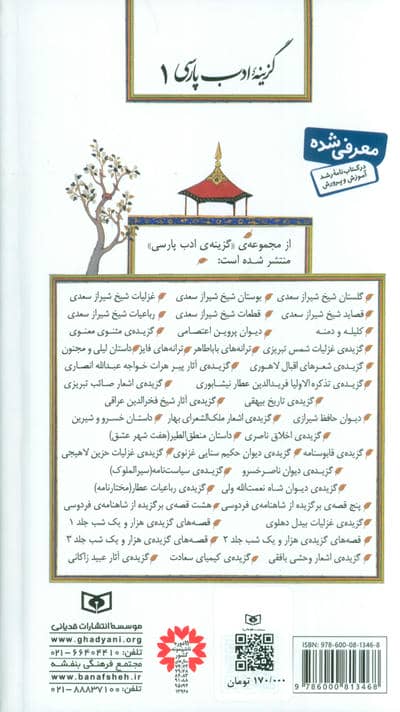 گزینهٔ ادب پارسی ۱
معرفی شده
در کتاب‌نامهٔ رشد
آموزش و پرورش
از مجموعه‌ی «گزینه‌ی ادب پارسی»
منتشر شده است:
گلستان شیخ شیراز سعدی بوستان شیخ شیراز سعدی غزلیات شیخ شیراز سعدی
قصاید شیخ شیراز سعدی قطعات شیخ شیراز سعدی رباعیات شیخ شیراز سعدی
کلیله و دمنه دیوان پروین اعتصامی گزیده‌ی مثنوی معنوی
گزیده‌ی غزلیات شمس تبریزی ترانه‌های باباطاهر ترانه‌های فایز داستان لیلی و مجنون
گزیده‌ی شعرهای اقبال لاهوری گزیده‌ی آثار پیر هرات خواجه عبدالله انصاری
گزیده‌ی تذکره الاولیا فریدالدین عطار نیشابوری گزیده‌ی اشعار صائب تبریزی
گزیده‌ی تاریخ بیهقی گزیده‌ی آثار شیخ فخرالدین عراقی
دیوان حافظ شیرازی گزیده‌ی اشعار ملک‌الشعرای بهار داستان خسرو و شیرین
گزیده‌ی اخلاق ناصری داستان منطق‌الطیر(هفت شهر عشق)
گزیده‌ی قابوسنامه گزیده‌ی دیوان حکیم سنایی غزنوی گزیده‌ی غزلیات حزین لاهیجی
گزیده‌ی دیوان ناصرخسرو گزیده‌ی سیاست‌نامه(سیرالملوک)
گزیده‌ی دیوان شاه نعمت‌الله ولی گزیده‌ی رباعیات عطار(مختارنامه)
پنج قصه‌ی برگزیده از شاهنامه‌ی فردوسی هشت قصه‌ی برگزیده از شاهنامه‌ی فردوسی
گزیده‌ی غزلیات بیدل دهلوی قصه‌های گزیده‌ی هزار و یک شب جلد ۱
قصه‌های گزیده‌ی هزار و یک شب جلد ۲ قصه‌های گزیده‌ی هزار و یک شب جلد ۳
گزیده‌ی اشعار وحشی بافقی گزیده‌ی کیمیای سعادت گزیده‌ی آثار عبید زاکانی
موسسه انتشارات قدیانی
www.ghadyani.org
تلفن: ۶۶۴۰۴۴۱۰-۰۲۱
مجتمع فرهنگی بنفشه
www.banafsheh.ir
تلفن: ۸۸۸۳۷۱۰۰-۰۲۱
۱۷۰/۰۰۰ تومان
ISBN: 978-600-08-1346-8
9 786000 813468